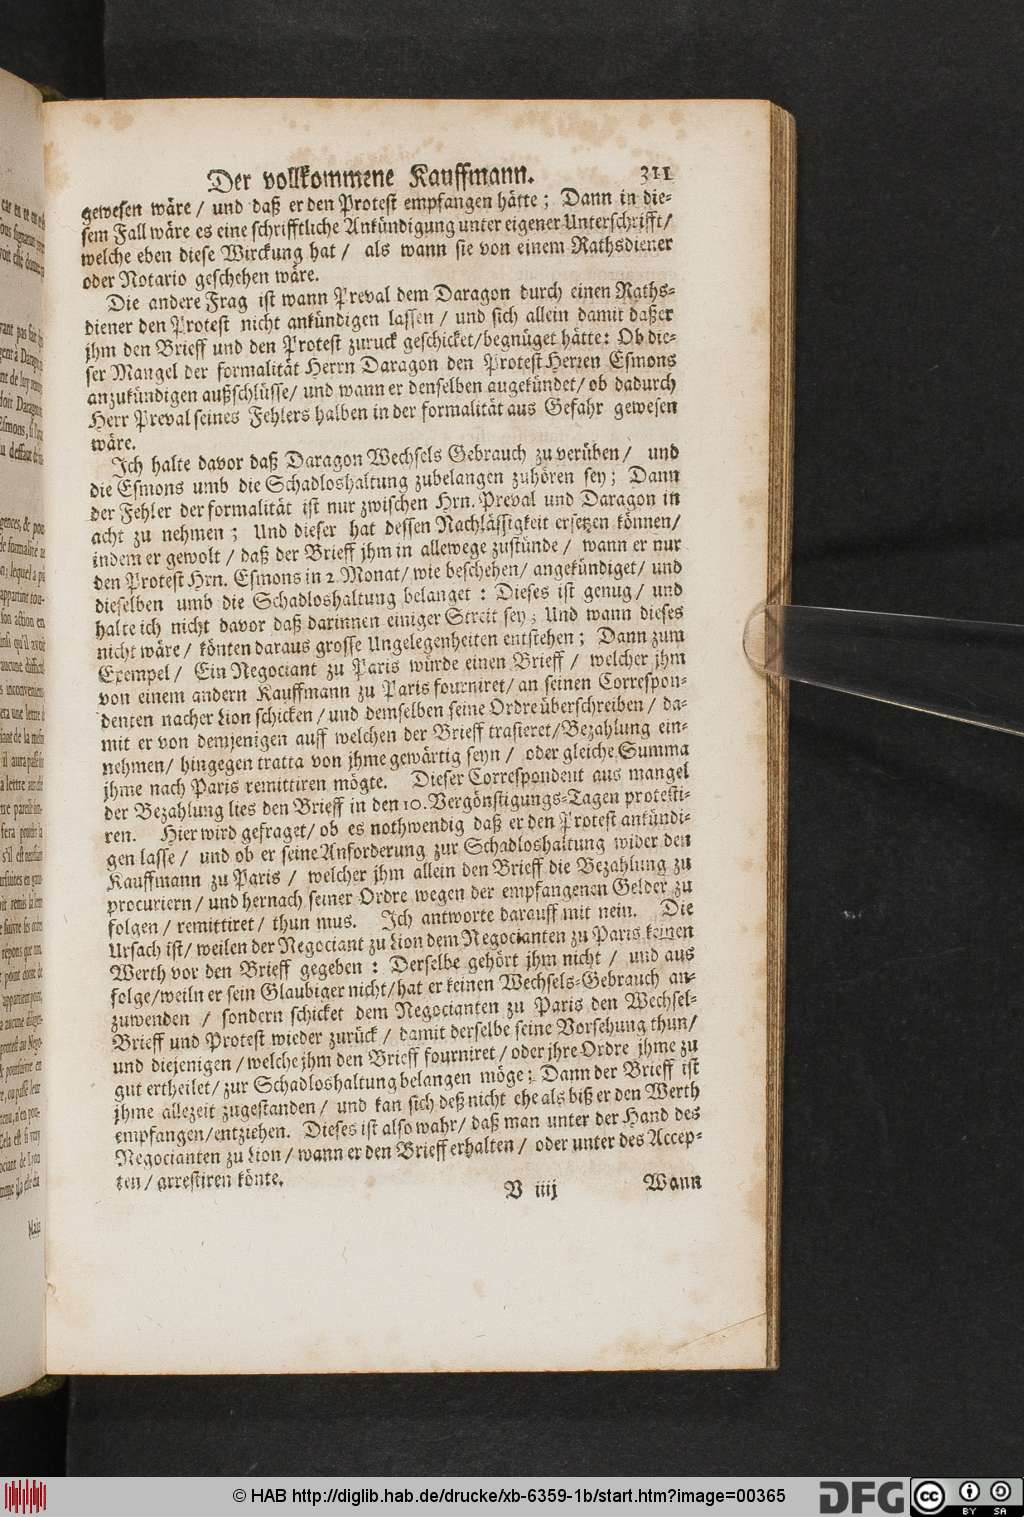 Der vollkommene Kauffmann. 311
gewesen wäre / und daß er den Protest empfangen hätte ; Dann in die-
sem Fall wäre es eine schrifftliche Ankündigung unter eigener Unterschrifft /
welche eben diese Wirckung hat / als wann sie von einem Rathsdiener
oder Notario geschehen wäre.
Die andere Frag ist wann Preval dem Daragon durch einen Raths-
diener den Protest nicht ankündigen lassen / und sich allein damit daß er
jhm den Brieff und den Protest zuruck geschicket / begnüget hätte : Ob die-
ser Mangel der formalität Herrn Daragon den Protest Herren Esmons
anzukündigen außschlüsse / und wann er denselben angekündet / ob dadurch
Herr Preval seines Fehlers halben in der formalität aus Gefahr gewesen
wäre.
Jch halte davor daß Daragon Wechsels Gebrauch zu verüben / und
die Esmons umb die Schadloshaltung zubelangen zuhören sey ; Dann
der Fehler der formalität ist nur zwischen Hrn. Preval und Daragon in
acht zu nehmen ; Und dieser hat dessen Nachlässigkeit ersetzen können /
indem er gewolt / daß der Brieff jhm in allewege zustünde / wann er nur
den Protest Hrn. Esmons in 2. Monat / wie beschehen / angekündiget / und
dieselben umb die Schadloshaltung belanget : Dieses ist genug / und
halte ich nicht davor daß darinnen einiger Streit sey ; Und wann dieses
nicht wäre / könten daraus grosse Ungelegenheiten entstehen ; Dann zum
Exempel / Ein Negociant zu Paris würde einen Brieff / welcher jhm
von einem andern Kauffmann zu Paris fourniret / an seinen Correspon-
denten nacher Lion schicken / und demselben seine Ordre überschreiben / da-
mit er von demjenigen auff welchen der Brieff trasieret / Bezahlung ein-
nehmen / hingegen tratta von jhme gewärtig seyn / oder gleiche Summa
jhme nach Paris remittiren mögte. Dieser Correspondent aus mangel
der Bezahlung lies den Brieff in den 10. Vergönstigungs-Tagen protesti-
ren. Hier wird gefraget / ob es nothwendig daß er den Protest ankündi-
gen lasse / und ob er seine Anforderung zur Schadloshaltung wider den
Kauffmann zu Paris / welcher jhm allein den Brieff die Bezahlung zu
procuriern / und hernach seiner Ordre wegen der empfangenen Gelder zu
folgen / remittiret / thun mus. Jch antworte darauff mit nein. Die
Ursach ist / weilen der Negociant zu Lion dem Negocianten zu Paris keinen
Werth vor den Brieff gegeben : Derselbe gehört jhm nicht / und aus
folge / weiln er sein Glaubiger nicht / hat er keinen Wechsels-Gebrauch an-
zuwenden / sondern schicket dem Negocianten zu Paris den Wechsel-
Brieff und Protest wieder zurück / damit derselbe seine Vorsehung thun /
und diejenigen / welche jhm den Brieff fourniret / oder jhre Ordre jhme zu
gut ertheilet / zur Schadloshaltung belangen möge ; Dann der Brieff ist
jhme allezeit zugestanden / und kan sich deß nicht ehe als biß er den Werth
empfangen / entziehen. Dieses ist also wahr / daß man unter der Hand des
Negocianten zu Lion / wann er den Brieff erhalten / oder unter des Accep-
ten / arrestiren könte.
V iiij Wann
© HAB http://diglib.hab.de/drucke/xb-6359-1b/start.htm?image=00365
DFG
cc BY SA